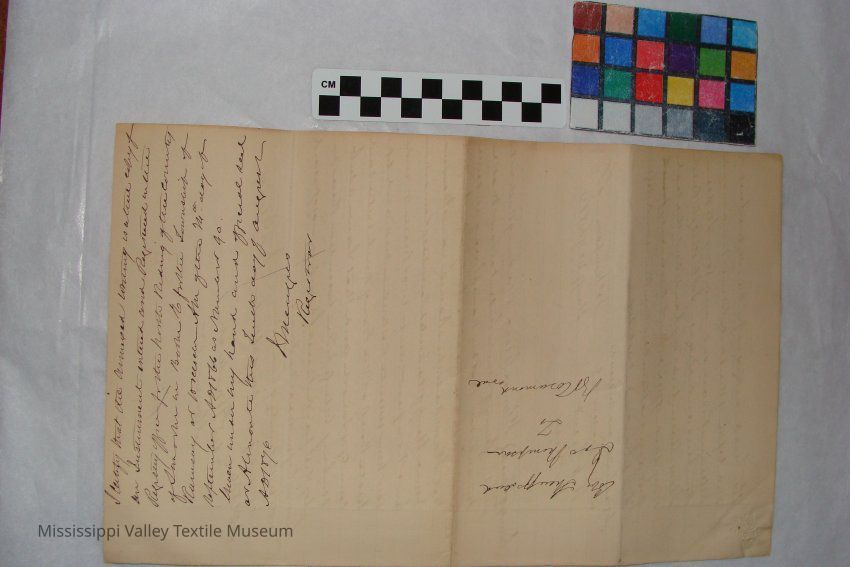 I certify that the annexed writing is a true copy of
an Instrument entered and Registered in the
Registry Office for the North Riding of the County
of Lanark in Book for the Township of
Ramsay at o'clock A.M. of the day of
September A.D. 1866 as Number 90.
Given under my hand and official seal
at Almonte this tenth day of August
A.D. 1876
Registrar
To
Thompson
Rosamond
CM
Mississippi Valley Textile Museum